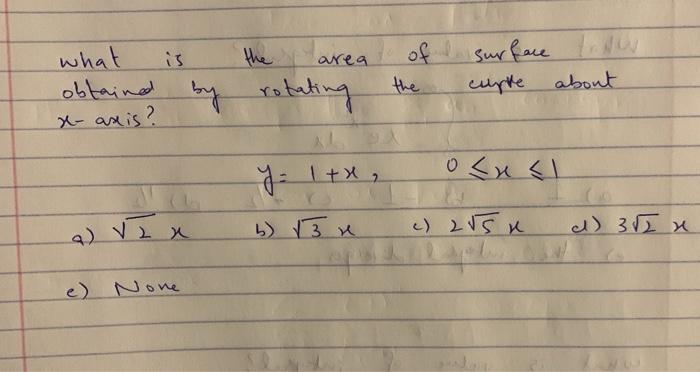 what is the area of surface
obtained by rotating the curve about
x-axis?
y = 1+x, 0 ≤ x ≤ 1
a) √2 x b) √3 x c) 2√5 x d) 3√2 x
e) None